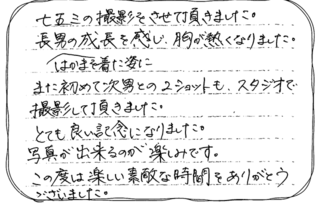 七五三の撮影をさせて頂きました。
長男の成長を感じ、胸が熱くなりました。
はかまを着た姿に
また初めて次男との2ショットも、スタジオで
撮影して頂きました。
とても良い記念になりました。
写真が出来るのが楽しみです。
この度は楽しい素敵な時間をありがとう
ございました。